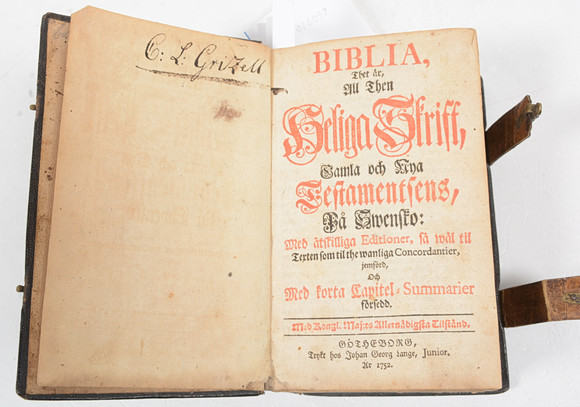 C: L: Grizell
BIBLIA,
Thet är,
All Then
Heliga Skrift,
Gamla och Nya
Testamentsens,
På Swensko:
Med åtskilliga Editioner, så wäl til
Texten som til the wanliga Concordantier,
jemförd,
Och
Med korta Capitel-Summarier
försedd.
Med Kongl. Maj:ts Allernådigsta Tilstånd.
GÖTHEBORG,
Tryckt hos Johan Georg Lange, Junior.
År 1752.